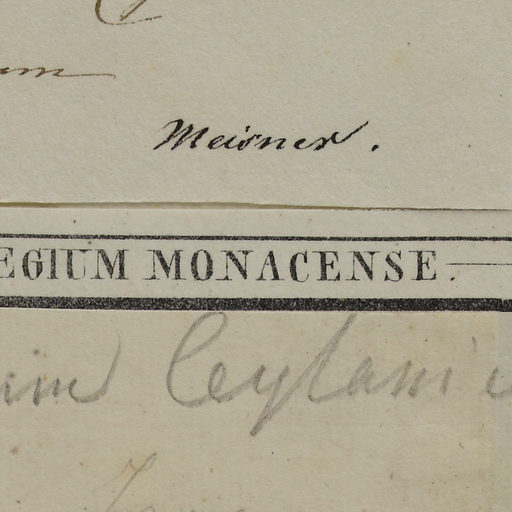 um
Meisner.
EGIUM MONACENSE.
Ceylani